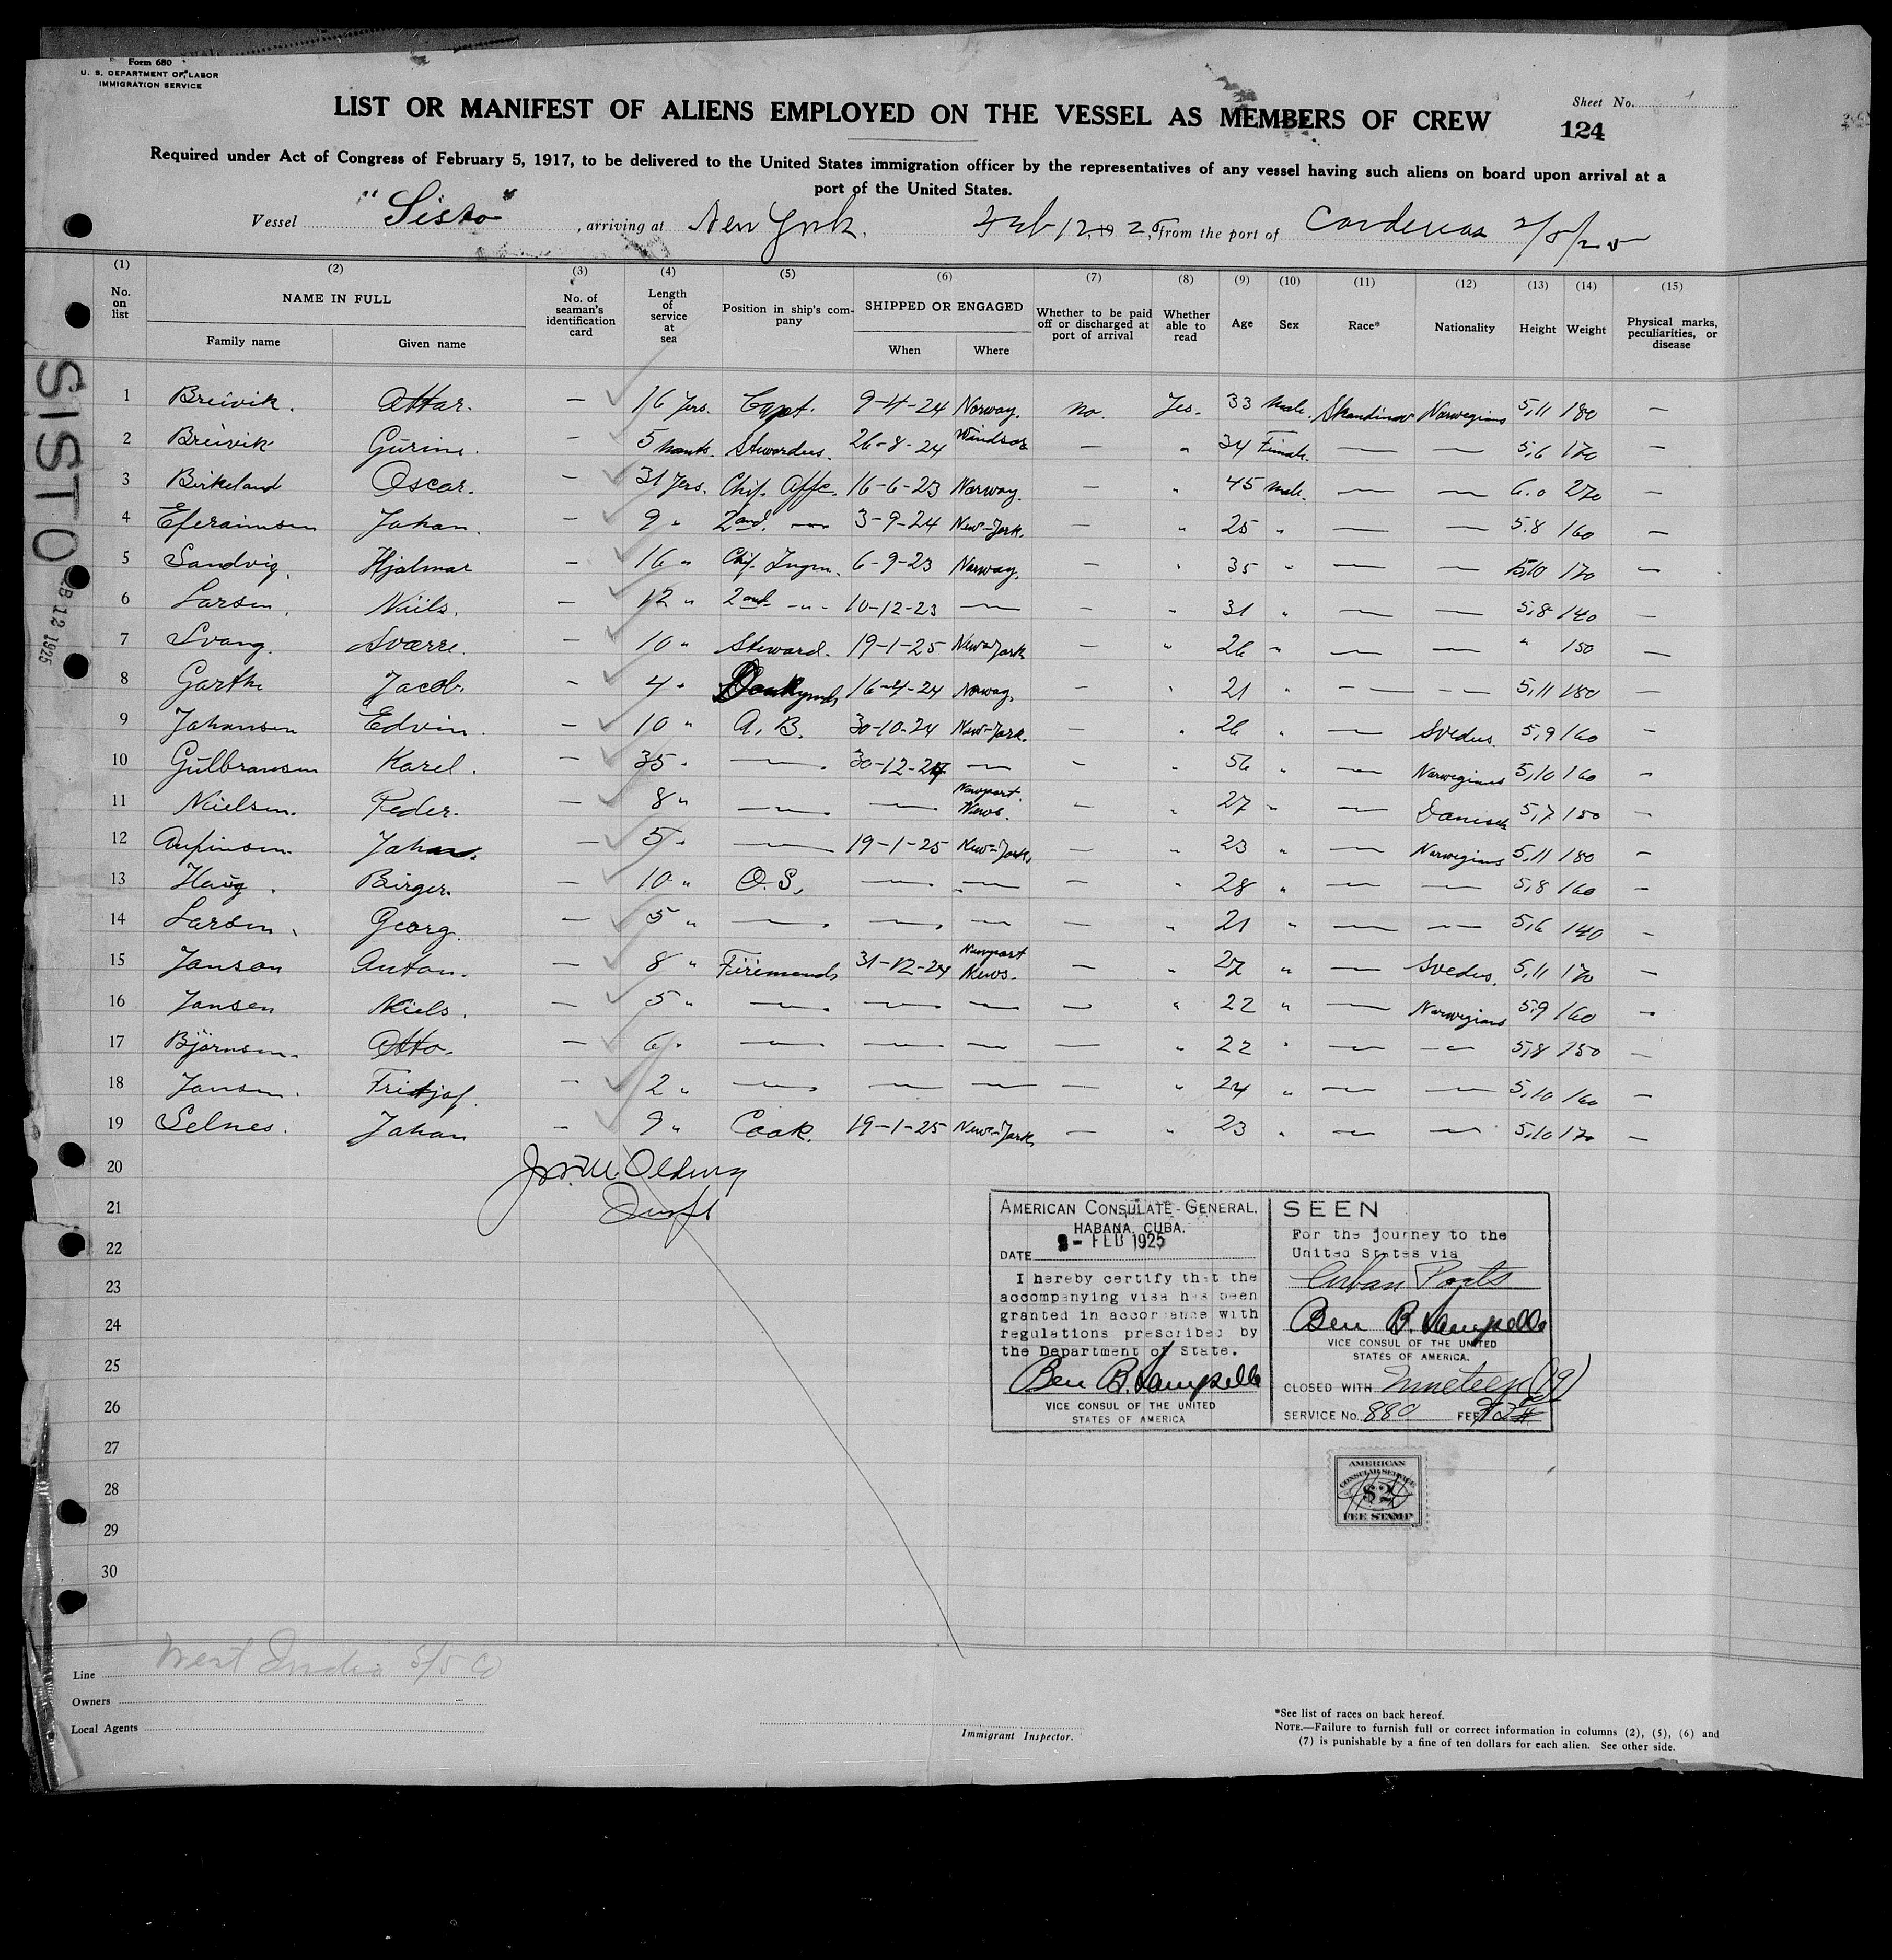 Form 680
U. S. DEPARTMENT OF LABOR
IMMIGRATION SERVICE
Sheet No. 1
LIST OR MANIFEST OF ALIENS EMPLOYED ON THE VESSEL AS MEMBERS OF CREW
124
Required under Act of Congress of February 5, 1917, to be delivered to the United States immigration officer by the representatives of any vessel having such aliens on board upon arrival at a
port of the United States.
Vessel "Sisto", arriving at New York. Feb 12, 19 25, from the port of Cardenas 2/8/25
(1) (2) (3) (4) (5) (6) (7) (8) (9) (10) (11) (12) (13) (14) (15)
No. on list NAME IN FULL Family name Given name No. of seaman's identification card Length of service at sea Position in ship's company SHIPPED OR ENGAGED When Where Whether to be paid off or discharged at port of arrival Whether able to read Age Sex Race* Nationality Height Weight Physical marks, peculiarities, or disease
1 Breivik. Ottar. — 16 Yrs. Capt. 9-4-24 Norway. no. Yes. 33 Male. Skandinav Norwegians 5,11 180 —
2 Breivik Gurine. — 5 Stewardess. 26-8-24 Windsor — " 34 Female. — — 5,6 170 —
3 Birkeland Oscar. — 31 Yrs. Chif. Offc. 16-6-23 Norway. — " 45 Male. — — 6.0 270 —
4 Eferaimsen Johan. — 9 " 2and. — 3-9-24 New-York. — " 25 " — — 5.8 160 —
5 Sandvig. Hjalmar — 16 " Chif. Ingen. 6-9-23 Norway. — " 35 " — — 5,10 170 —
6 Larsen. Niils. — 12 " 2and -"- 10-12-23 — — " 31 " — — 5,8 140 —
7 Svang. Sværre. — 10 " Steward. 19-1-25 New-York — " 26 " — — " 150 —
8 Garthe Jacob. — 4 " 16-4-24 Norway. — " 21 " — — 5,11 180 —
9 Johansen Edvin. — 10 " A. B. 30-10-24 New-York. — " 26 " — Svedes. 5,9 160 —
10 Gulbransen Karel. — 35 " — 30-12-24 — — " 56 " — Norwegians 5,10 160 —
11 Nielsen. Peder. — 8 " — — Newport News. — " 27 " — Danisch 5,7 150 —
12 Johan. — 5 " — 19-1-25 New-York. — " 23 " — Norwegians 5,11 180 —
13 Haug. Birger. — 10 " O. S. — — — " 28 " — — 5,8 160 —
14 Larsen. Georg. — 5 " — — — — " 21 " — — 5,6 140 —
15 Janson Anton. — 8 " Firemands 31-12-24 Newport News. — " 27 " — Svedes. 5,11 170 —
16 Jansen Niels. — 5 " — — — — " 22 " — Norwegians 5,9 160 —
17 Björnsen. Otto. — 6 " — — — — " 22 " — — 5,8 150 —
18 Jansen. Fritjof. — 2 " — — — — " 24 " — — 5,10 160 —
19 Selnes. Johan — 9 " Cook. 19-1-25 New-York. — " 23 " — — 5,10 170 —
20
21
22
23
24
25
26
27
28
29
30
SISTO
FEB 12 1925
AMERICAN CONSULATE-GENERAL.
HABANA, CUBA.
DATE 9 - FEB 1925
I hereby certify that the
accompanying visa has been
granted in accordance with
regulations prescribed by
the Department of State.
VICE CONSUL OF THE UNITED
STATES OF AMERICA
SEEN
For the journey to the
United States via
Cuban Ports
VICE CONSUL OF THE UNITED
STATES OF AMERICA.
CLOSED WITH Nineteen (19)
SERVICE No. 880 FEE $2
AMERICAN
CONSULAR SERVICE
$2
FEE STAMP
Line West India S/S Co
Owners
Local Agents
Immigrant Inspector.
*See list of races on back hereof.
NOTE.—Failure to furnish full or correct information in columns (2), (5), (6) and
(7) is punishable by a fine of ten dollars for each alien. See other side.